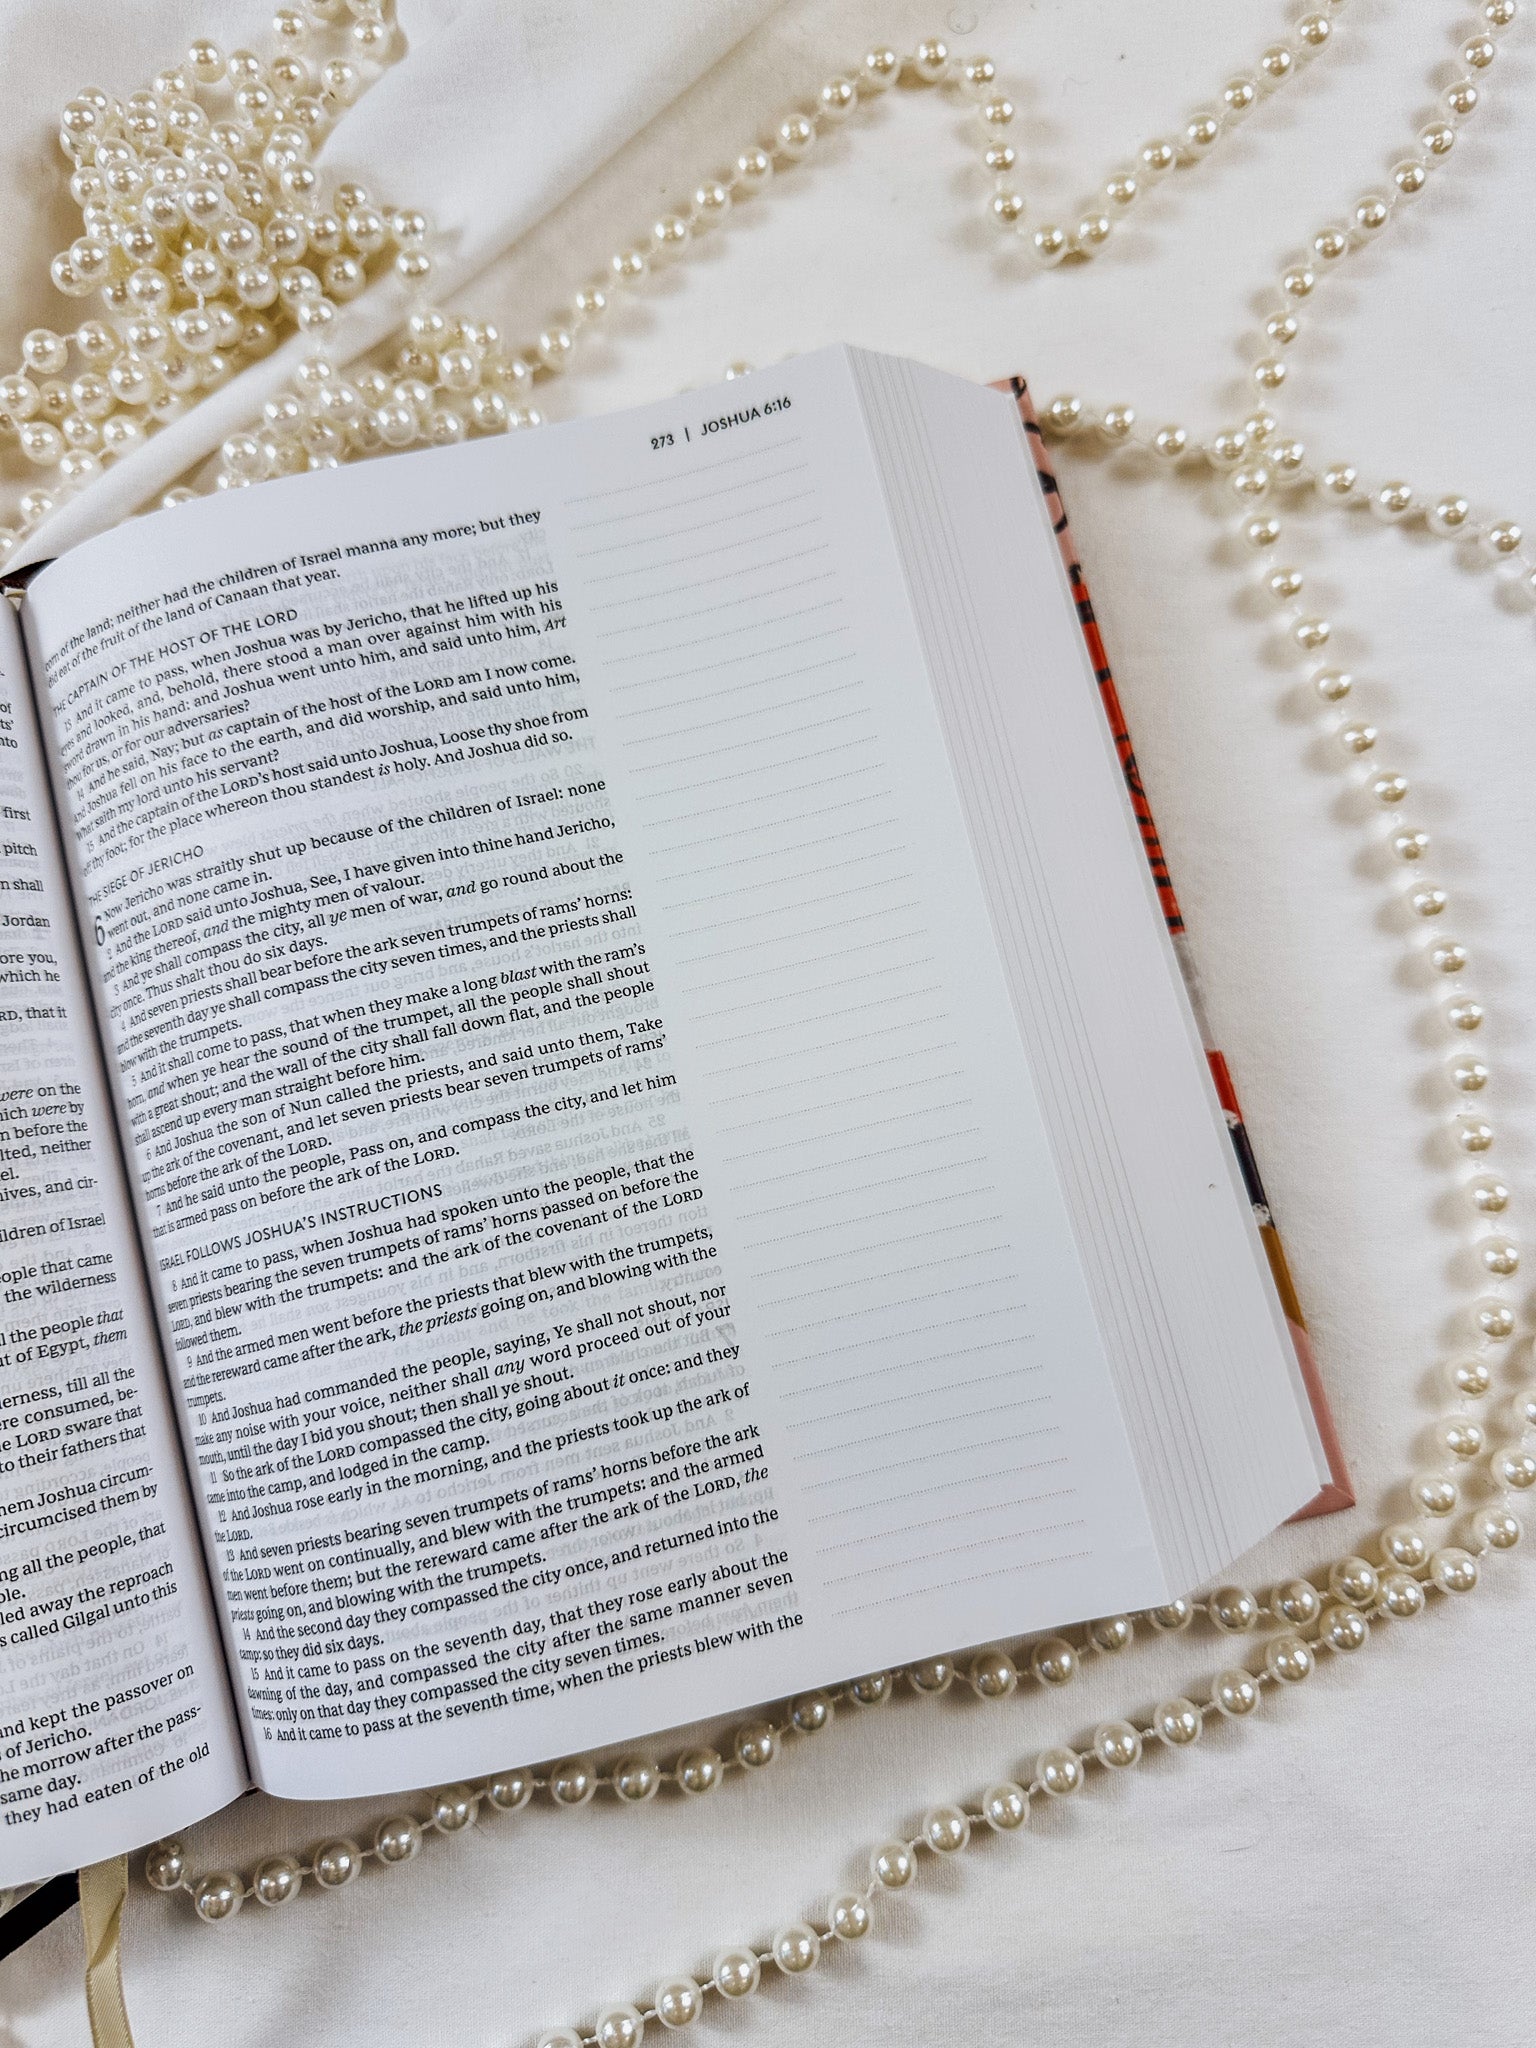 of
ts'
nto
first
pitch
n shall
Jordan
ore you,
which he
RD, that it
were on the
hich were by
n before the
lted, neither
el.
nives, and cir-
ildren of Israel
eople that came
the wilderness
ll the people that
ut of Egypt, them
derness, till all the
ere consumed, be-
he LORD sware that
to their fathers that
hem Joshua circum-
circumcised them by
ng all the people, that
ole.
led away the reproach
s called Gilgal unto this
and kept the passover on
s of Jericho.
he morrow after the pass-
same day.
they had eaten of the old
273 | JOSHUA 6:16
corn of the land; neither had the children of Israel manna any more; but they
did eat of the fruit of the land of Canaan that year.
THE CAPTAIN OF THE HOST OF THE LORD
13 And it came to pass, when Joshua was by Jericho, that he lifted up his
eyes and looked, and, behold, there stood a man over against him with his
sword drawn in his hand: and Joshua went unto him, and said unto him, Art
thou for us, or for our adversaries?
14 And he said, Nay; but as captain of the host of the LORD am I now come.
And Joshua fell on his face to the earth, and did worship, and said unto him,
What saith my lord unto his servant?
15 And the captain of the LORD's host said unto Joshua, Loose thy shoe from
off thy foot; for the place whereon thou standest is holy. And Joshua did so.
THE SIEGE OF JERICHO
6 Now Jericho was straitly shut up because of the children of Israel: none
went out, and none came in.
2 And the LORD said unto Joshua, See, I have given into thine hand Jericho,
and the king thereof, and the mighty men of valour.
3 And ye shall compass the city, all ye men of war, and go round about the
city once. Thus shalt thou do six days.
4 And seven priests shall bear before the ark seven trumpets of rams' horns:
and the seventh day ye shall compass the city seven times, and the priests shall
blow with the trumpets.
5 And it shall come to pass, that when they make a long blast with the ram's
horn, and when ye hear the sound of the trumpet, all the people shall shout
with a great shout; and the wall of the city shall fall down flat, and the people
shall ascend up every man straight before him.
6 And Joshua the son of Nun called the priests, and said unto them, Take
up the ark of the covenant, and let seven priests bear seven trumpets of rams'
horns before the ark of the LORD.
7 And he said unto the people, Pass on, and compass the city, and let him
that is armed pass on before the ark of the LORD.
ISRAEL FOLLOWS JOSHUA'S INSTRUCTIONS
8 And it came to pass, when Joshua had spoken unto the people, that the
seven priests bearing the seven trumpets of rams' horns passed on before the
LORD, and blew with the trumpets: and the ark of the covenant of the LORD
followed them.
9 And the armed men went before the priests that blew with the trumpets,
and the rereward came after the ark, the priests going on, and blowing with the
trumpets.
10 And Joshua had commanded the people, saying, Ye shall not shout, nor
make any noise with your voice, neither shall any word proceed out of your
mouth, until the day I bid you shout; then shall ye shout.
11 So the ark of the LORD compassed the city, going about it once: and they
came into the camp, and lodged in the camp.
12 And Joshua rose early in the morning, and the priests took up the ark of
the LORD.
13 And seven priests bearing seven trumpets of rams' horns before the ark
of the LORD went on continually, and blew with the trumpets: and the armed
men went before them; but the rereward came after the ark of the LORD, the
priests going on, and blowing with the trumpets.
14 And the second day they compassed the city once, and returned into the
camp: so they did six days.
15 And it came to pass on the seventh day, that they rose early about the
dawning of the day, and compassed the city after the same manner seven
times: only on that day they compassed the city seven times.
16 And it came to pass at the seventh time, when the priests blew with the